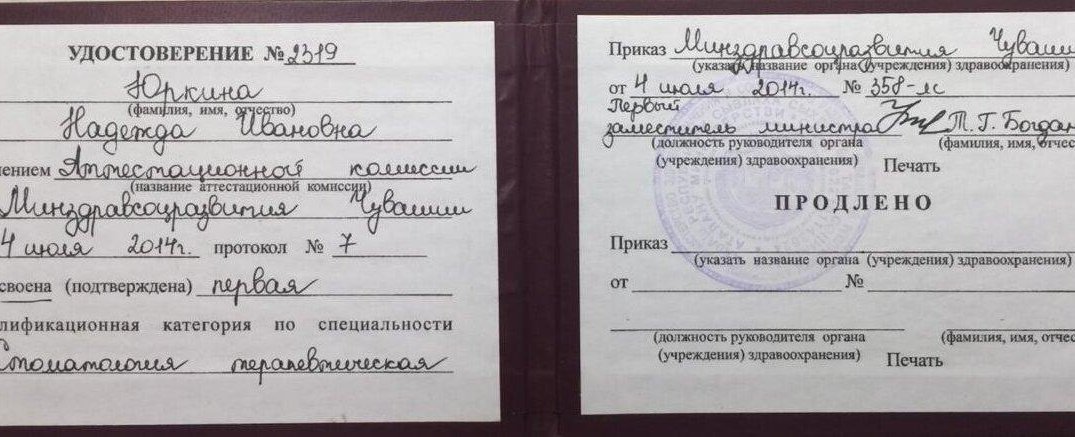 УДОСТОВЕРЕНИЕ № 2319
Юркина
(фамилия, имя, отчество)
Надежда Ивановна
лением Аттестационной комиссии
(название аттестационной комиссии)
Минздравсоцразвития Чувашии
4 июля 2014г. протокол № 7
своена (подтверждена) первая
лификационная категория по специальности
стоматология терапевтическая
Приказ Минздравсоцразвития Чувашии
(указать название органа (учреждения) здравоохранения)
от 4 июля 2014г. № 358-лс
Первый
заместитель министра Т.Г. Богдан
(должность руководителя органа (фамилия, имя, отчес
(учреждения) здравоохранения) Печать
ПРОДЛЕНО
Приказ
(указать название органа (учреждения) здравоохранения)
от №
(должность руководителя органа (фамилия, имя, отчес
(учреждения) здравоохранения) Печать